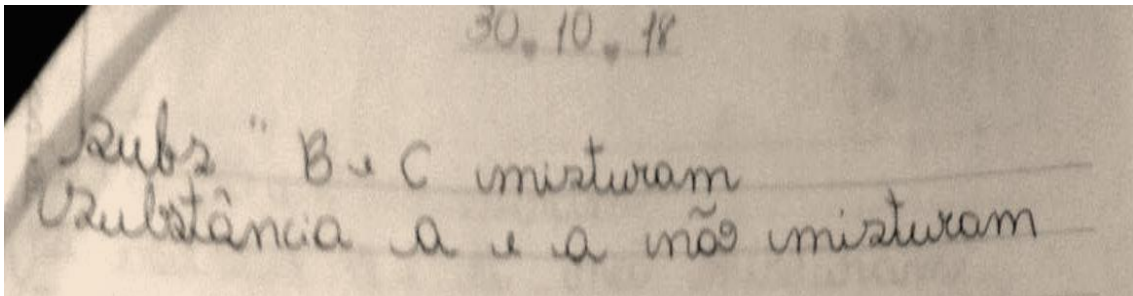 30.10.18
Subs " B e C misturam
Substância a e a não misturam